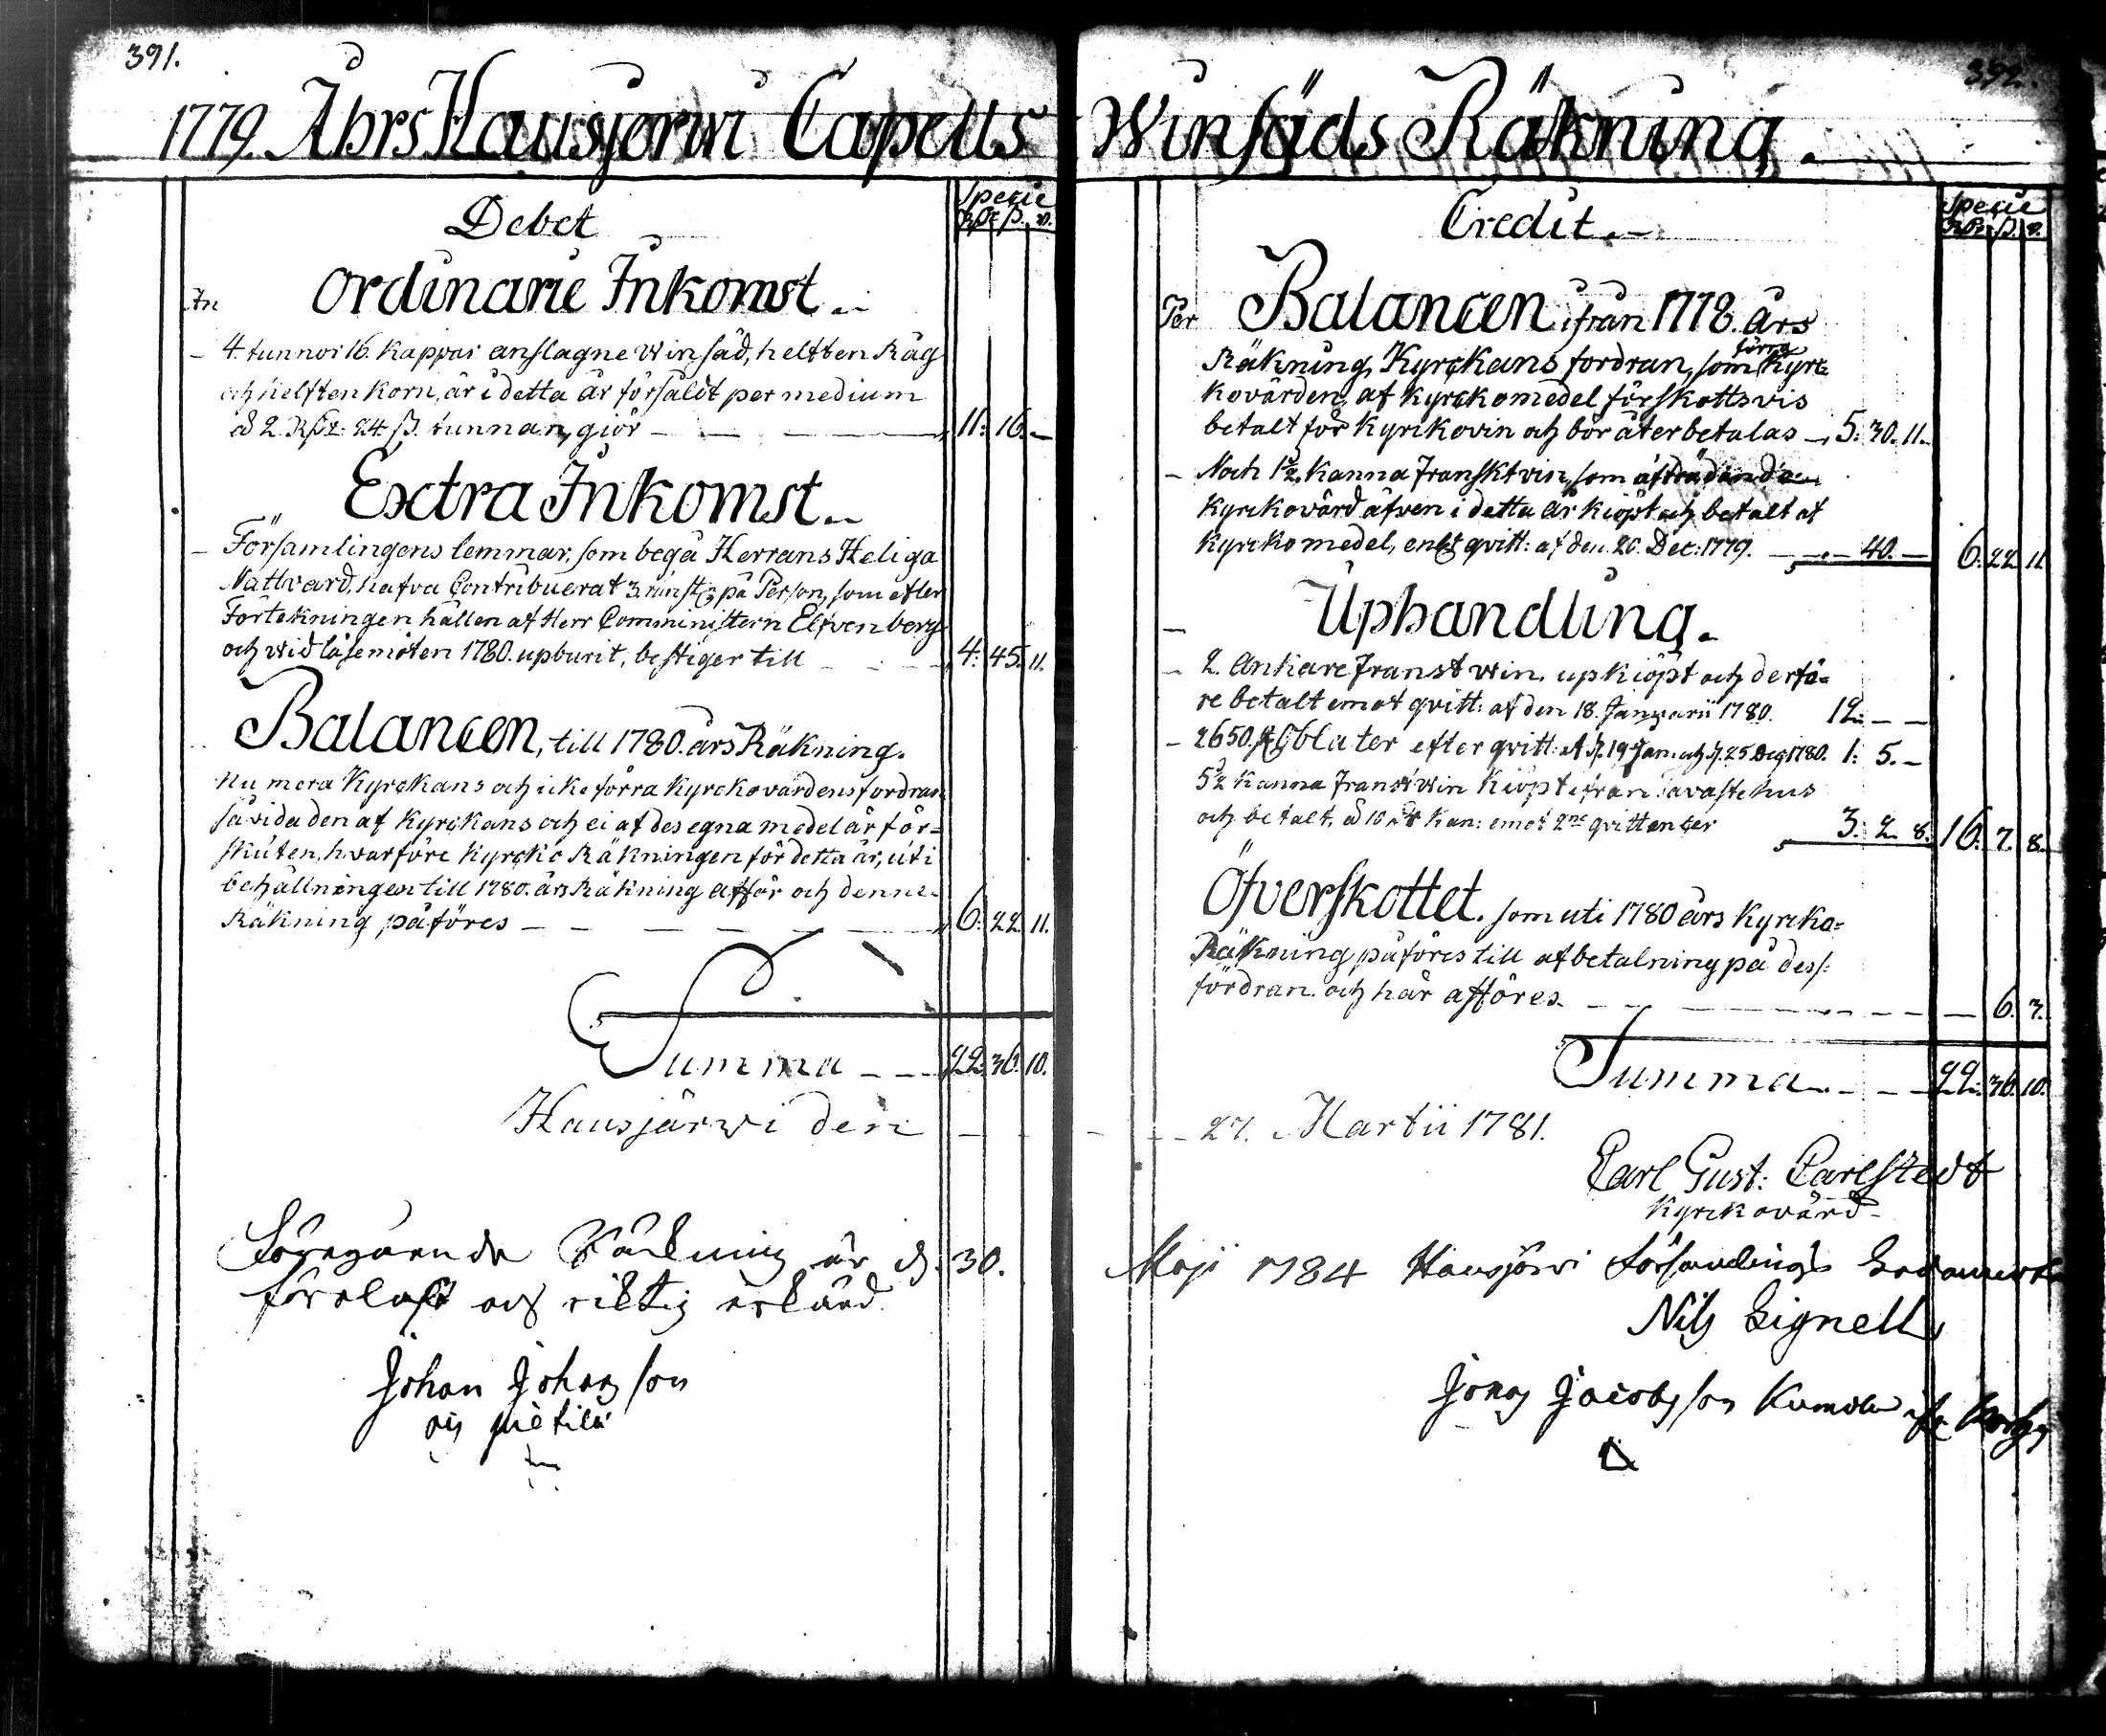 391.
1779. Åhrs Hausjerwi Capells
Debet
Specie
Rdr ß. rst.
In
Ordinarie Inkomst
4. tunnor 16. kappar anslagne winsäd, helften Råg
och helften korn, är i detta år försåldt per medium
à 2. Rdr: 24 ß. tunnan, giör 11: 16. –
Extra Inkomst
Församlingens lemmar, som begå Herrans Heliga
Nattvard, hafva Contribuerat 3. runst: på Person, som efter
Förtekningen hållen af Herr Comministern Elfvenberg
och wid läsemöten 1780. upburit, bestiger till 4: 45. 11.
Balancen, till 1780. års Räkning.
nu mera Kyrckans och icke förra Kyrckovärdens fordran
såvida den af Kyrckans och ei af des egna medel är för-
skuten, hvarföre Kyrcko Räkningen för detta år, uti
behållningen till 1780. års Räkning afför och denne
Räkning påföres 6. 22. 11.
Summa 22. 36. 10.
Hausjärwi den
Föregående Räkning är d. 30.
föreläst och riktig erkänd.
Johan Johansson
392.
Winsäds Räkning.
Credit.
Specie
Rdr ß. r.
Per
Balancen ifrån 1778. års
Räkning, Kyrckans fordran, som förra Kyrc-
kovärden, af Kyrckomedel förskottsvis
betalt för Kyrckovin och bör återbetalas 5: 30. 11.
Noch 1½ Kanna Franskt vin, som afträdande
Kyrckovärd äfven i detta år kiöpt och betalt af
Kyrckomedel, enligt qvitt: af den 26. Dec: 1779. 40. – 6. 22 11.
Uphandling.
2. Ankare Franst win. upkiöpt och derfö-
re betalt emot qvitt: af den 18. Januarii 1780. 12. – –
2650. st Oblater efter qvitt: af d. 19 Jan: och d. 25 Dec 1780. 1: 5. –
5½ Kanna Franst win kiöpt ifrån Tavastehus
och betalt, à Kan: emot 2ne qvittencer 3. 2. 8. 16. 7. 8.
Öfverskottet. som uti 1780 års Kyrcko-
Räkning påföres till afbetalning på dess:
fordran. och här afföres. 6. 3.
Summa 22. 36. 10.
27. Martii 1781.
Carl Gust: Carlstedt
Kyrckovärd
Maji 1784 Hausjärvi Församlings
Nils Lignell
Jonas Jacobsson